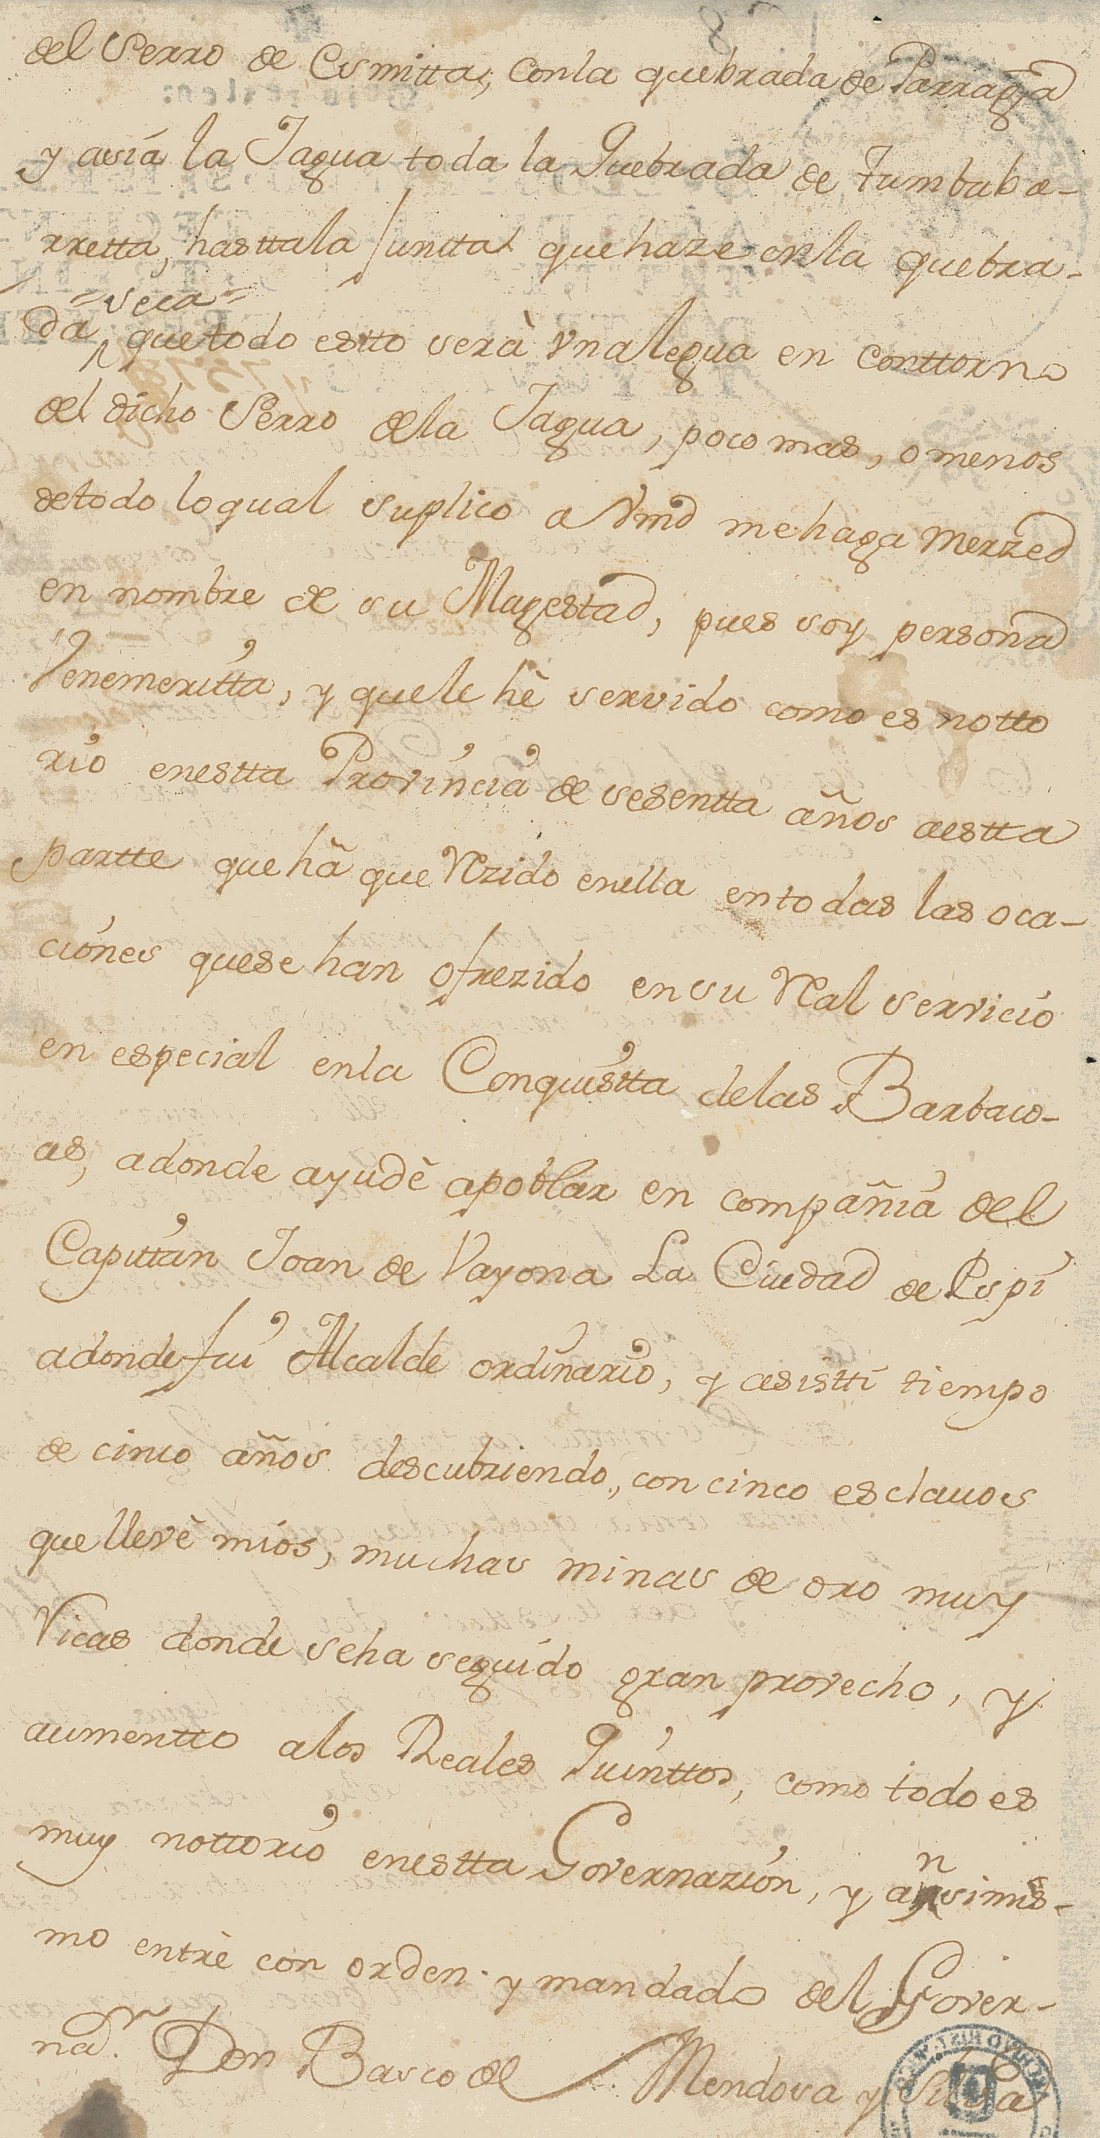 del Serro de Cusmitta, conla quebrada de Parraga
y asia la Jagua toda la Quebrada de tumbaba-
rretta, hasttala Juntta que haze enla quebra-
=seca=
da, quetodo estto serà Vnalegua en conttorno
del dicho Serro dela Jagua, poco mas, o menos
detodo loqual suplico a Vmd mehaga merzed
en nombre de su Magestad, pues soy persona
Venemeritta, y quele hè servido como es notto
rio enestta Provincia de sesentta años aestta
partte que hà que Rezido enella entodas las oca-
ciones quese han ofrezido ensu Real servicio
en especial enla Conquistta delas Barbaco-
as, adonde ayudè apoblar en compañia del
Capittan Joan de Vayona La Ciudad de Pspi
adonde fui Alcalde ordinario, y asisttì tiempo
de cinco años descubriendo, con cinco esclauos
que llevè mios, muchas minas de oro muy
Ricas donde seha seguido gran provecho, y
aumentto alos Reales Quinttos, como todo es
muy nottorio enestta Governazion, y ansimis-
mo entrè con orden y mandado del Gover-
nador. Don Basco de Mendosa y Silba